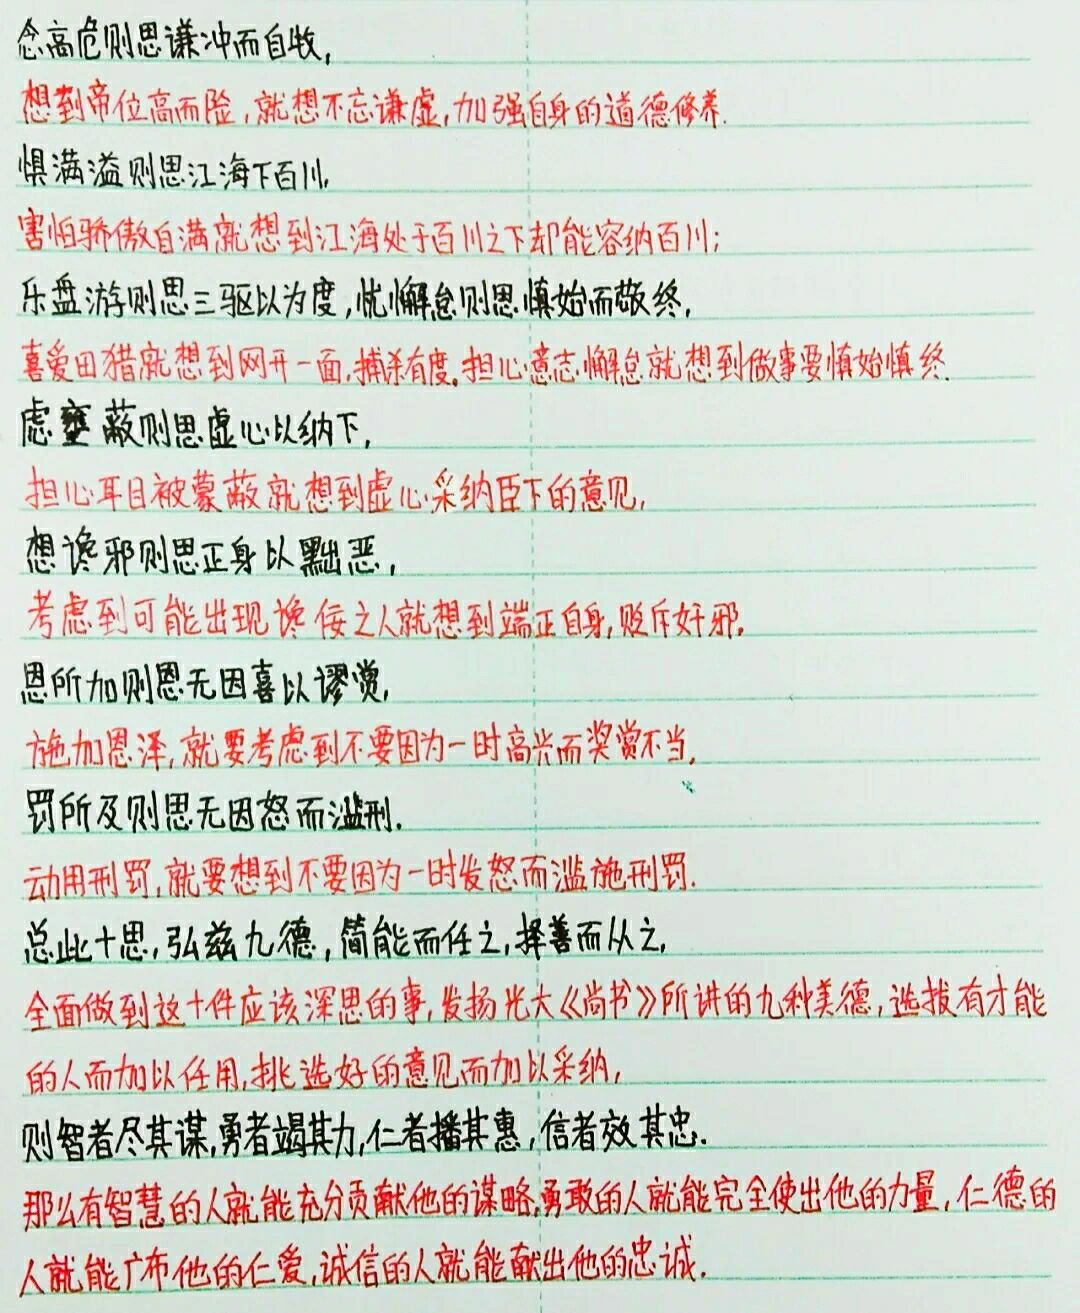 念高危则思谦冲而自牧,
想到帝位高而险,就想不忘谦虚,加强自身的道德修养.
惧满溢则思江海下百川,
害怕骄傲自满就想到江海处于百川之下却能容纳百川;
乐盘游则思三驱以为度,忧懈怠则思慎始而敬终,
喜爱田猎就想到网开一面,捕杀有度。担心意志懈怠就想到做事要慎始慎终.
虑壅蔽则思虚心以纳下,
担心耳目被蒙蔽就想到虚心采纳臣下的意见,
想谗邪则思正身以黜恶,
考虑到可能出现谗佞之人就想到端正自身,贬斥奸邪,
恩所加则思无因喜以谬赏,
施加恩泽,就要考虑到不要因为一时高兴而奖赏不当,
罚所及则思无因怒而滥刑.
动用刑罚,就要想到不要因为一时发怒而滥施刑罚.
总此十思,弘兹九德,简能而任之,择善而从之,
全面做到这十件应该深思的事,发扬光大《尚书》所讲的九种美德,选拔有才能
的人而加以任用,挑选好的意见而加以采纳,
则智者尽其谋,勇者竭其力,仁者播其惠,信者效其忠.
那么有智慧的人就能充分贡献他的谋略,勇敢的人就能完全使出他的力量,仁德的
人就能广布他的仁爱,诚信的人就能献出他的忠诚.